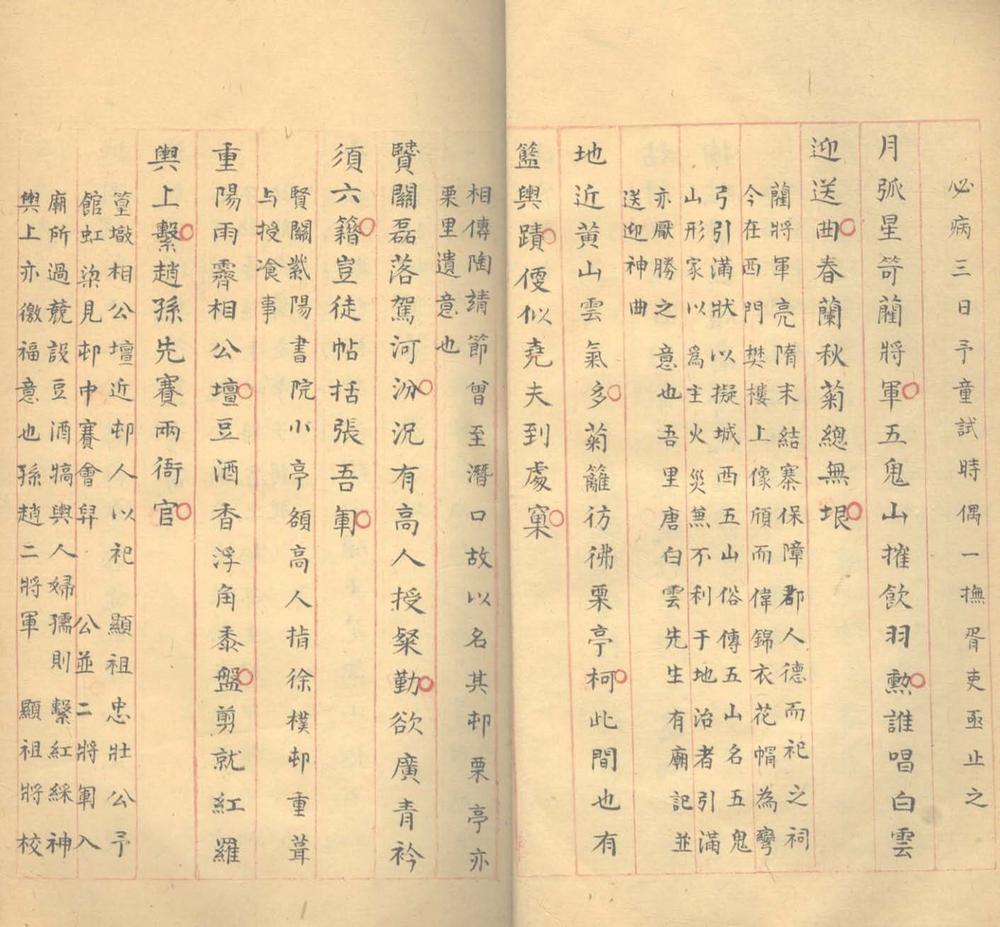 必病三日予童試時偶一撫胥吏亟止之
月弧星笴藺將軍五鬼山摧飲羽勲誰唱白雲
迎送曲春蘭秋菊總無垠
藺將軍亮隋末結寨保障郡人德而祀之祠
今在西門樊樓上像頎而偉錦衣花帽為彎
弓引滿狀以擬城西五山俗傳五山名五鬼
山形家以為主火災兼不利于地治者引滿
亦厭勝之意也吾里唐白雲先生有廟記並
送迎神曲
地近黃山雲氣多菊籬彷彿栗亭柯此間也有
籃輿蹟便似堯夫到處窠
相傳陶靖節曾至潛口故以名其邨栗亭亦
栗里遺意也
賢關磊落駕河汾況有高人授粲勤欲廣青衿
須六籍豈徒帖括張吾軍
賢關紫陽書院小亭額高人指徐樸邨重葺
与授飡事
重陽雨霽相公壇豆酒香浮角黍盤剪就紅羅
輿上繫趙孫先賽兩衙官
篁墩相公壇近邨人以祀顯祖忠壯公予
館虹梁見邨中賽會舁公並二將軍入
廟所過競設豆酒犒輿人婦孺則繫紅綵神
輿上亦徼福意也孫趙二將軍顯祖將校